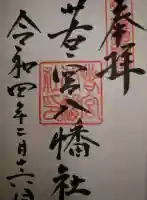 奉拝
若宮八幡社
令和四年二月十六日